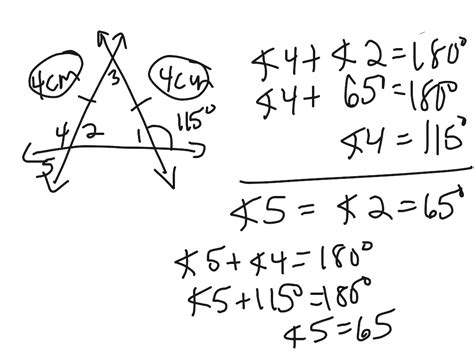 4cm
4cm
3
115°
4 2 1
5
∡4 + ∡2 = 180°
∡4 + 65° = 180°
∡4 = 115°
∡5 = ∡2 = 65°
∡5 + ∡4 = 180°
∡5 + 115° = 180°
∡5 = 65